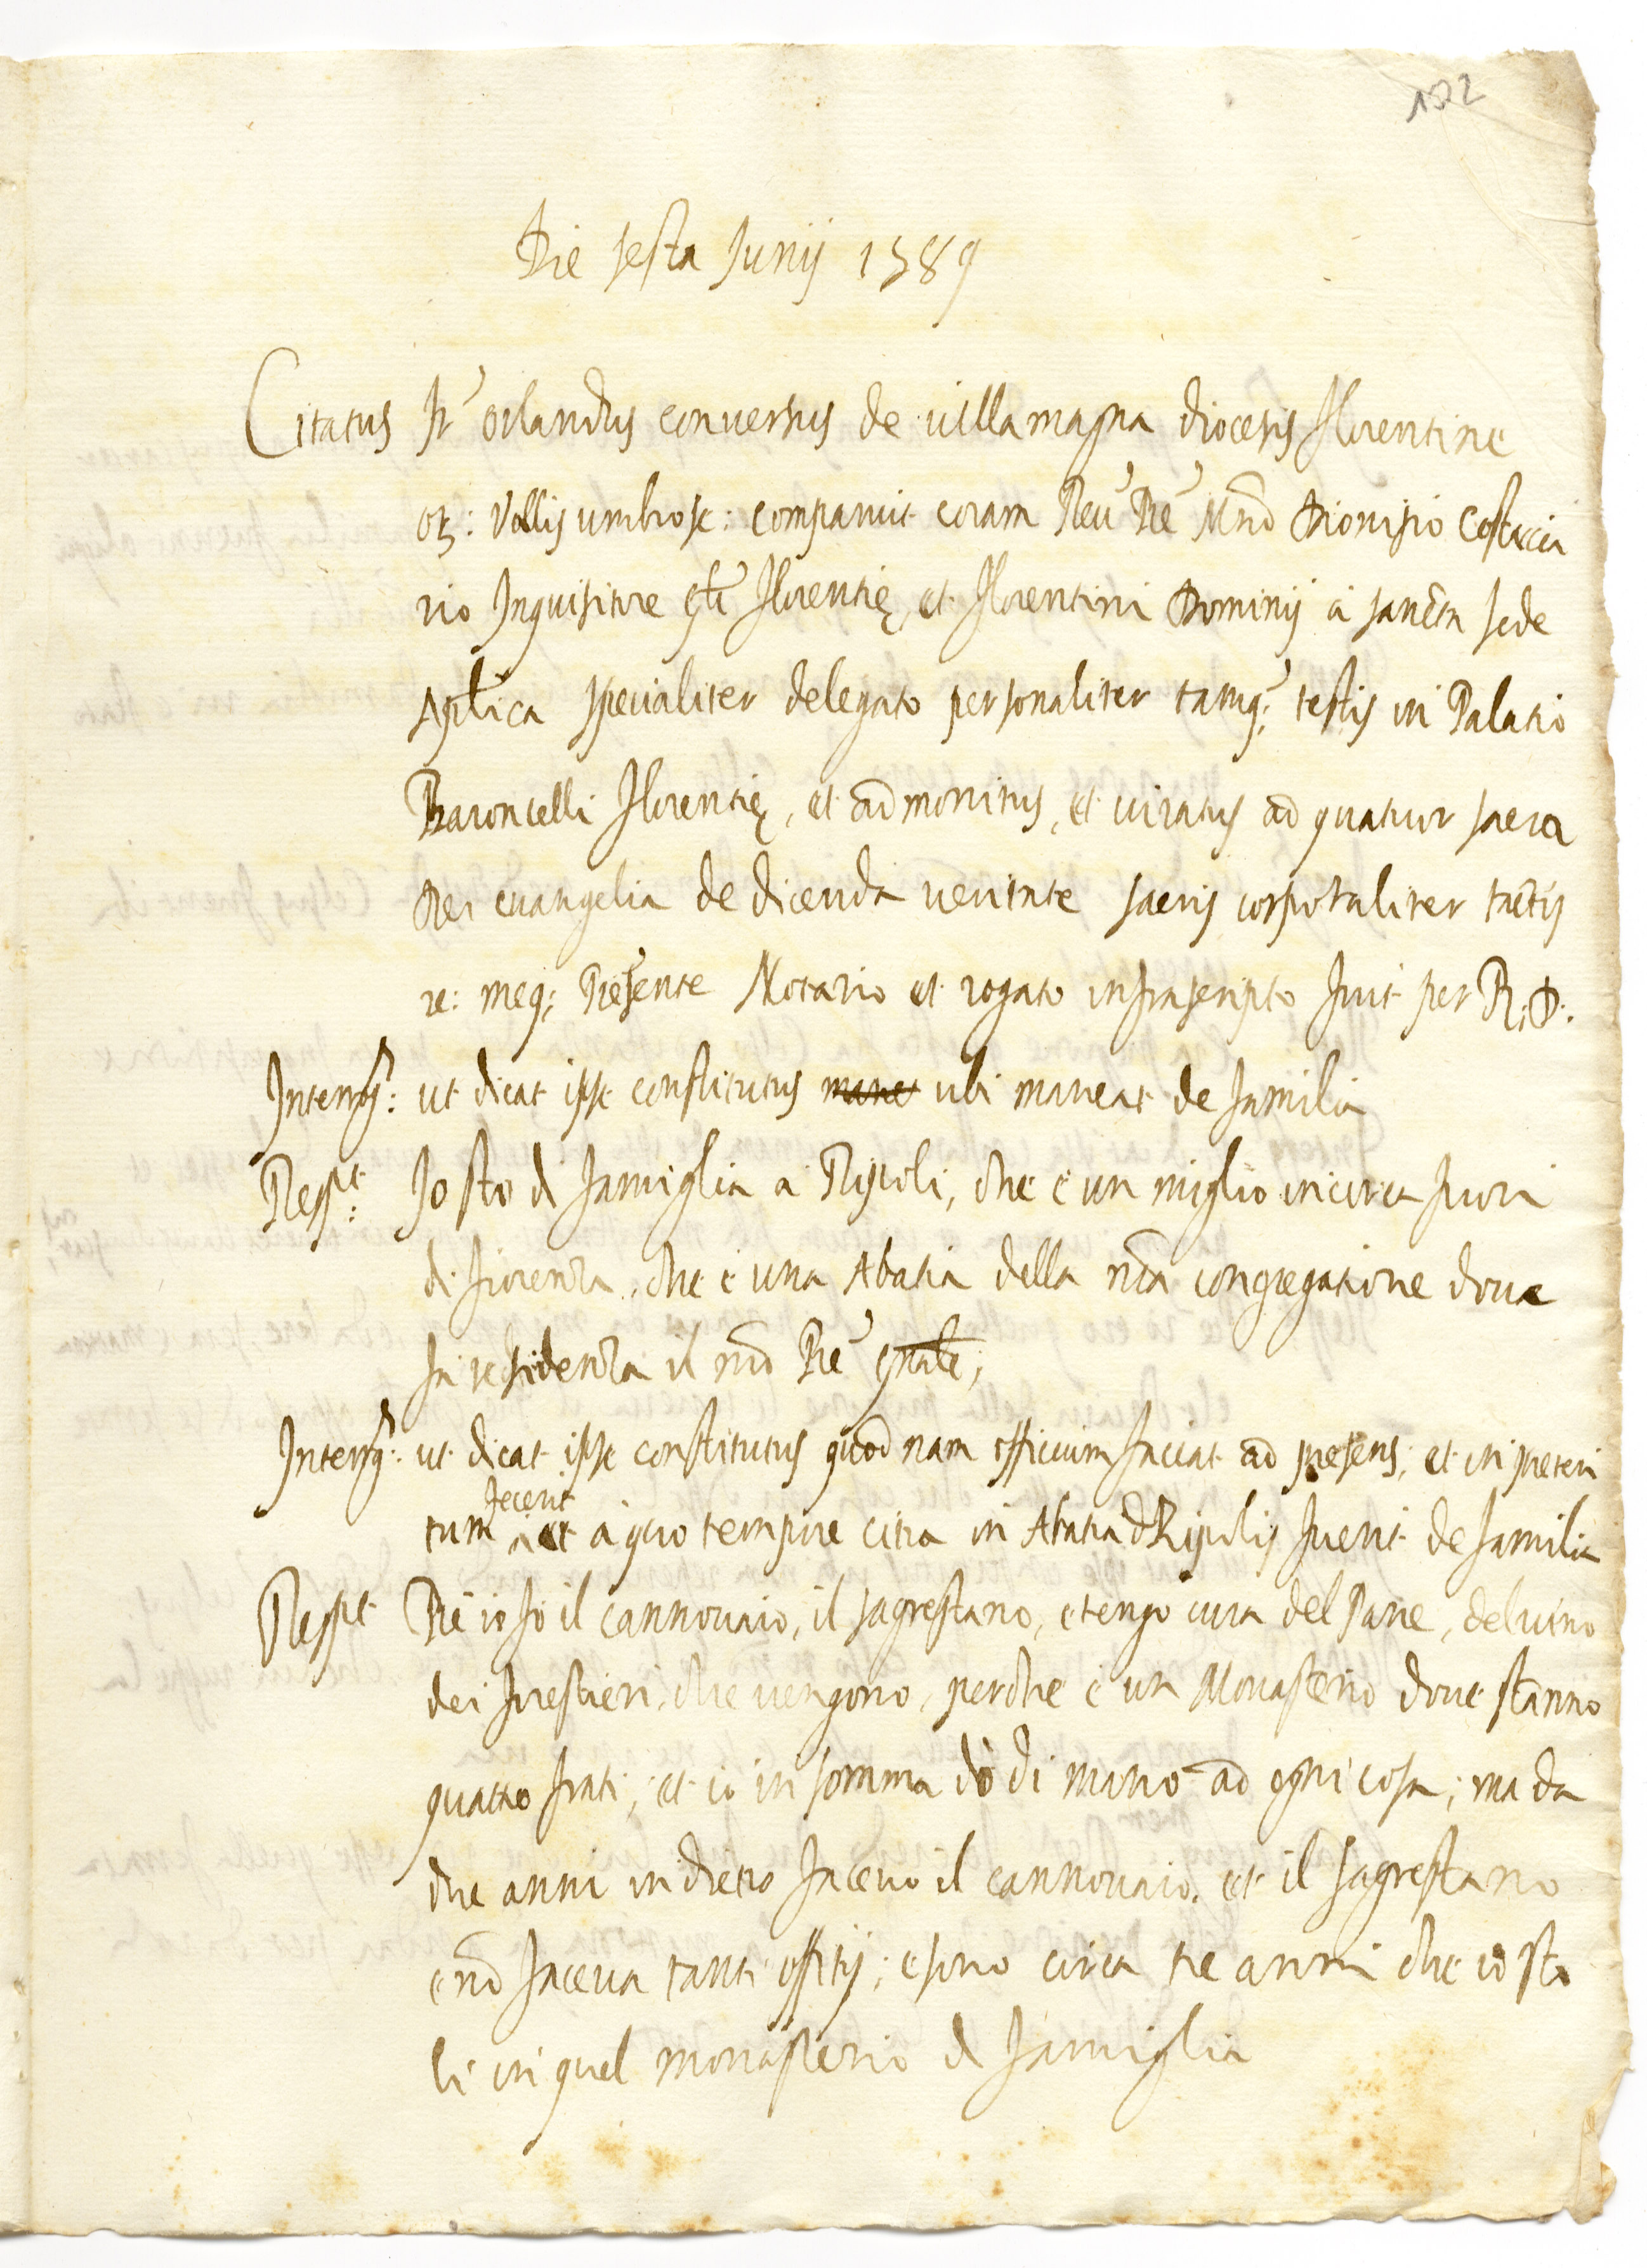 102
Die sesta Junij 1589
Citatus fr' orlandus conversus de villa magna diocesis florentine
or: Vallis umbrose: comparuit coram Reu' Pre' Mro Dionisio Costaccia
rio Inquisitore gli florentię, et florentini Dominij a' sancta sede
Aplica specialiter delegato personaliter tamq; testis in Palatio
Baroncelli florentię, et admonitus, et iuratus ad quatuor sacra
Dei euangelia de dicenda veritate sacris corporaliter tactis
re: meq; presente Notario et rogato infrascripto fuit per R: P:
Interrog: ut dicat ipse constitutus mane ubi maneat de familia
Respt: Io sto di famiglia a Ripoli, che è un miglio incirca fuori
di fiorenza, che è una Abatia della nra congregatione doue
fa residenza il nro Pre' gnale;
Interrog: ut dicat ipse constitutus quod nam officium faciat ad presens, et in preteri
tum fecerit et à quo tempore citra in Abatia d Ripolis fuerit de familia
Respt Pre io fo il cannouaio, il sagrestano, e tengo cura del Pane, del uino
dei forestieri, che uengono, perche è un Monasterio doue stanno
quattro frati; et io in somma dò di mano ad ogni cosa; ma da
due anni indietro faceuo il cannouaio, et il sagrestano
e nō faceua tanti offitij; e sono circa tre anni che io sto
li in quel monasterio di famiglia